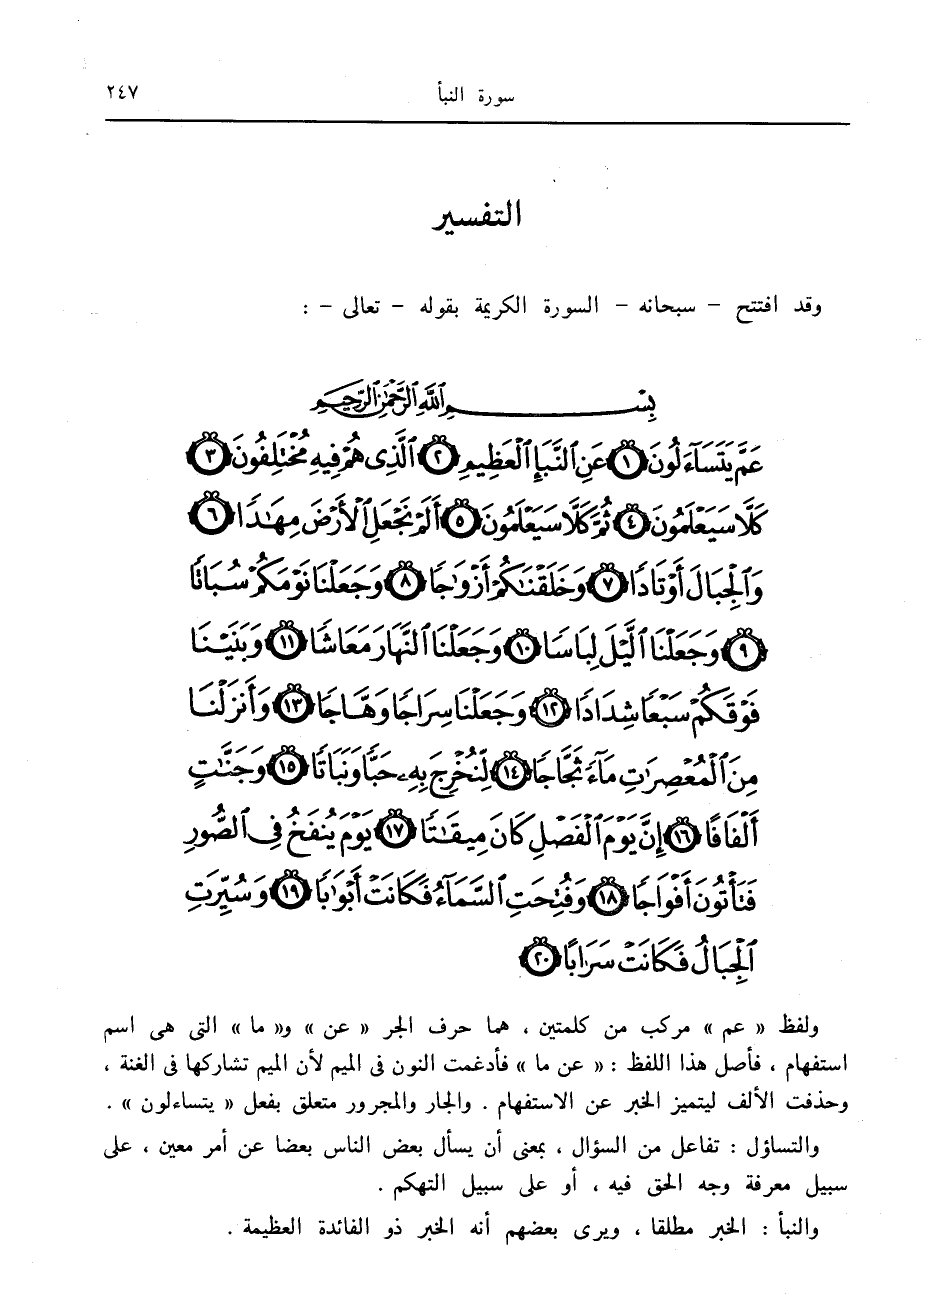 سورة النبأ ٢٤٧
التفسير
وقد افتتح – سبحانه – السورة الكريمة بقوله – تعالى – :
بِسْمِ ٱللَّهِ ٱلرَّحْمَٰنِ ٱلرَّحِيمِ
عَمَّ يَتَسَآءَلُونَ ١ عَنِ ٱلنَّبَإِ ٱلْعَظِيمِ ٢ ٱلَّذِى هُمْ فِيهِ مُخْتَلِفُونَ ٣
كَلَّا سَيَعْلَمُونَ ٤ ثُمَّ كَلَّا سَيَعْلَمُونَ ٥ أَلَمْ نَجْعَلِ ٱلْأَرْضَ مِهَٰدًا ٦
وَٱلْجِبَالَ أَوْتَادًا ٧ وَخَلَقْنَٰكُمْ أَزْوَٰجًا ٨ وَجَعَلْنَا نَوْمَكُمْ سُبَاتًا
٩ وَجَعَلْنَا ٱلَّيْلَ لِبَاسًا ١٠ وَجَعَلْنَا ٱلنَّهَارَ مَعَاشًا ١١ وَبَنَيْنَا
فَوْقَكُمْ سَبْعًا شِدَادًا ١٢ وَجَعَلْنَا سِرَاجًا وَهَّاجًا ١٣ وَأَنزَلْنَا
مِنَ ٱلْمُعْصِرَٰتِ مَآءً ثَجَّاجًا ١٤ لِّنُخْرِجَ بِهِۦ حَبًّا وَنَبَاتًا ١٥ وَجَنَّٰتٍ
أَلْفَافًا ١٦ إِنَّ يَوْمَ ٱلْفَصْلِ كَانَ مِيقَٰتًا ١٧ يَوْمَ يُنفَخُ فِى ٱلصُّورِ
فَتَأْتُونَ أَفْوَاجًا ١٨ وَفُتِحَتِ ٱلسَّمَآءُ فَكَانَتْ أَبْوَٰبًا ١٩ وَسُيِّرَتِ
ٱلْجِبَالُ فَكَانَتْ سَرَابًا ٢٠
ولفظ « عم » مركب من كلمتين ، هما حرف الجر « عن » و« ما » التى هى اسم
استفهام ، فأصل هذا اللفظ : « عن ما » فأدغمت النون فى الميم لأن الميم تشاركها فى الغنة ،
وحذفت الألف ليتميز الخبر عن الاستفهام . والجار والمجرور متعلق بفعل « يتساءلون » .
والتساؤل : تفاعل من السؤال ، بمعنى أن يسأل بعض الناس بعضا عن أمر معين ، على
سبيل معرفة وجه الحق فيه ، أو على سبيل التهكم .
والنبأ : الخبر مطلقا ، ويرى بعضهم أنه الخبر ذو الفائدة العظيمة .